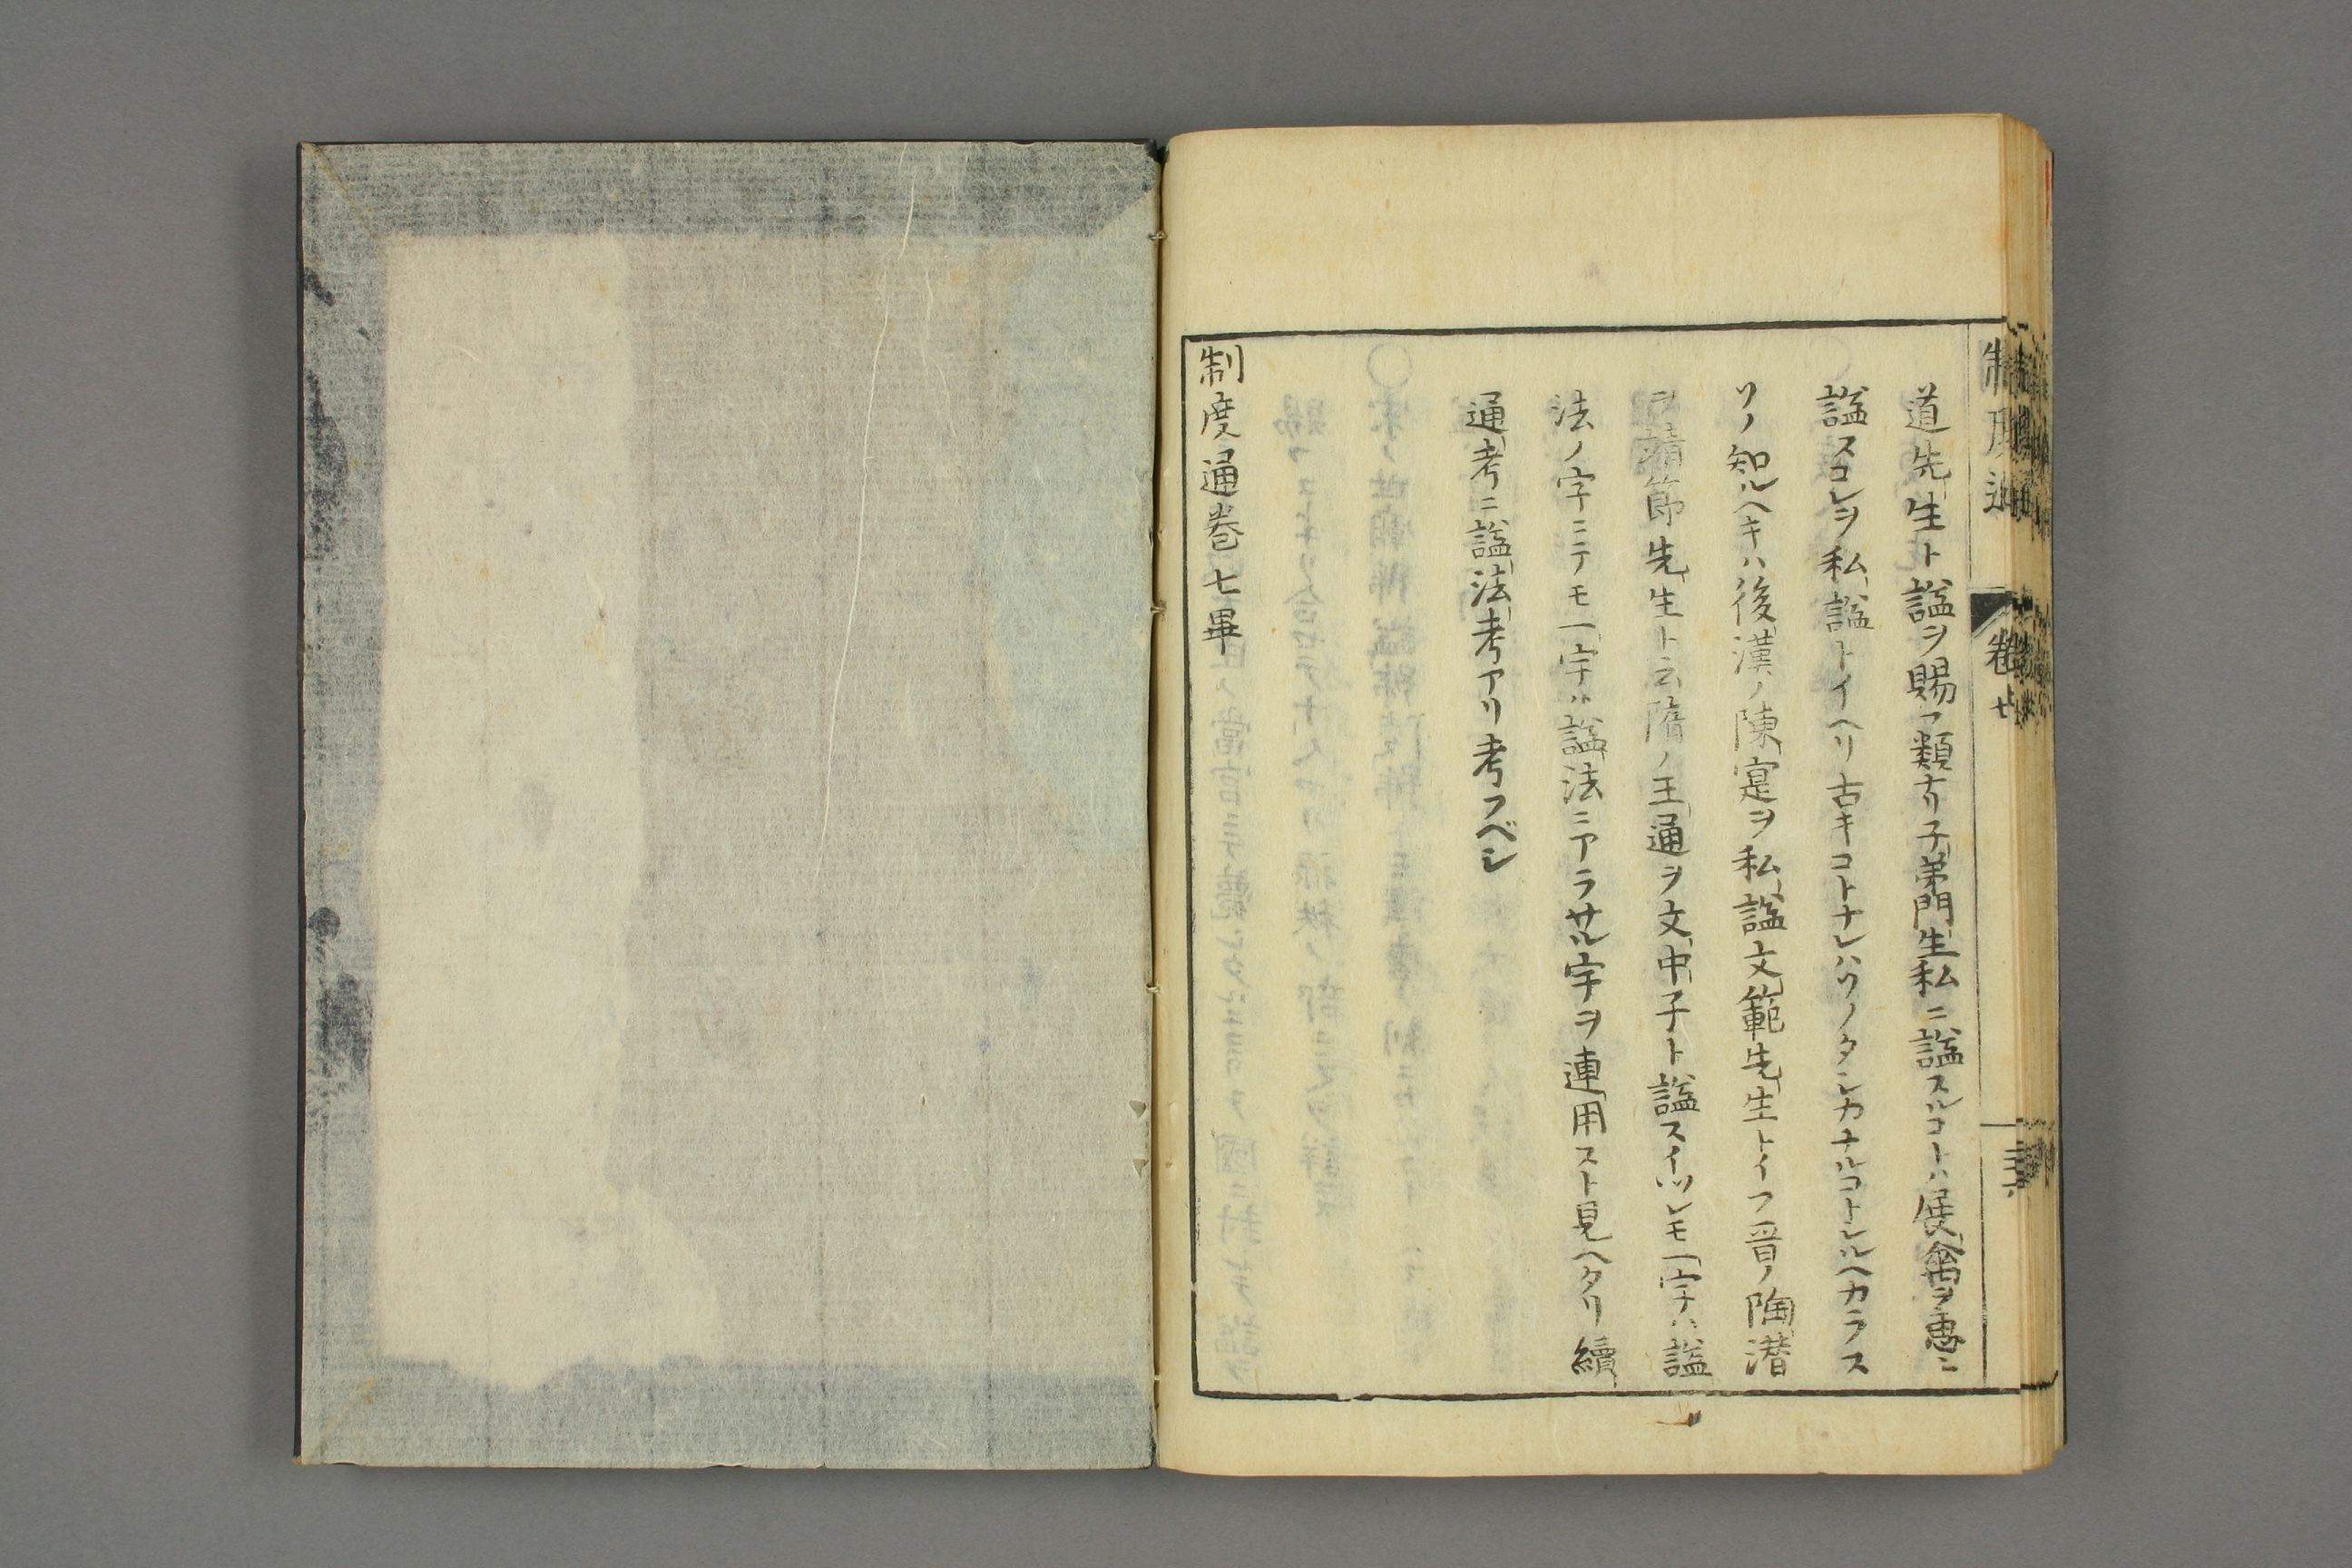 道先生ト諡ヲ賜フ類ナリ子弟門生私ニ諡スルコトハ展禽ヲ惠ニ
諡スコレヲ私諡トイヘリ古キコトナレハソノタシカナルコトシルヘカラス
ソノ知ルヘキハ後漢ノ陳寔ヲ私諡文範先生トイフ晋ノ陶潜
ヲ靖節先生ト云隋ノ王通ヲ文中子ト諡スイツレモ一字ハ諡
法ノ字ニテモ一字ハ諡法ニアラサル字ヲ連用スト見ヘタリ續
通考ニ諡法考アリ考フベシ
制度通巻七畢